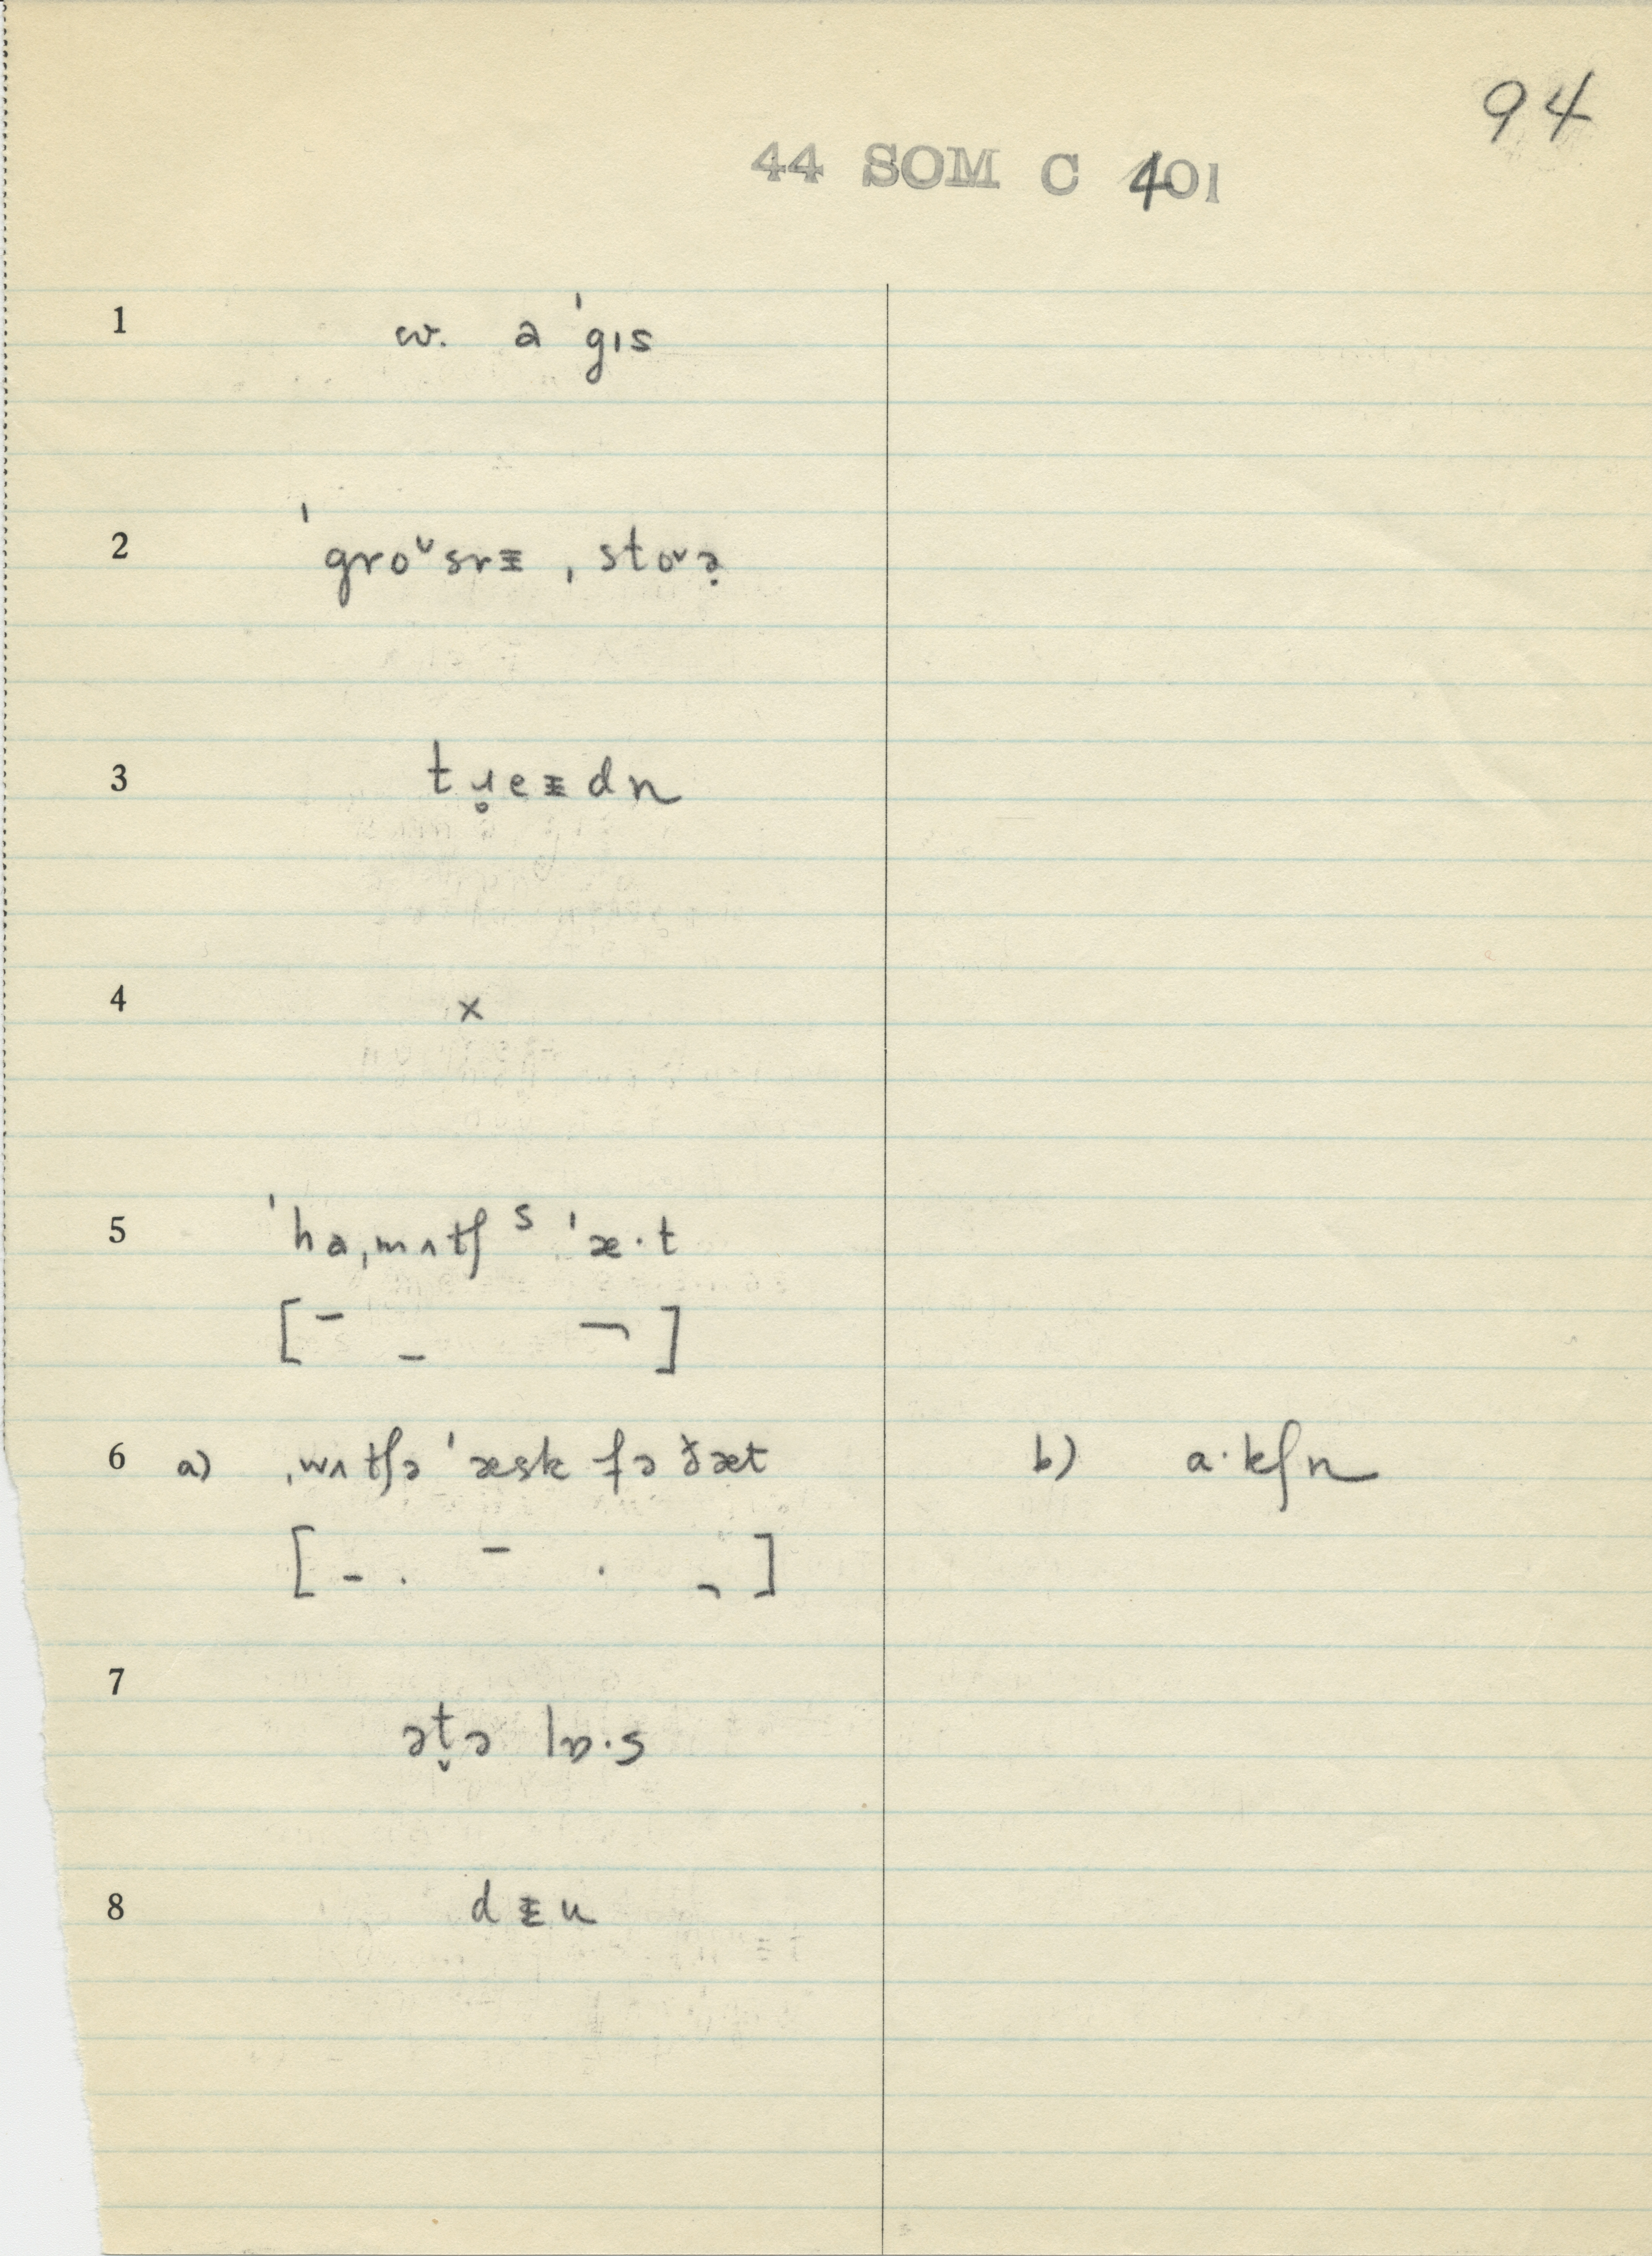 94
44 SOM C 401
1 w. a ˈgɪs
2 ˈgroᵛsrᵻ ˌstoᵛə̣
3 tɹ̥eᵻdn
4 x
5 ˈhaˌmʌtʃ ˢ ˈæ·t
[ ¯ _ ¬ ]
6 a) ˌwʌtʃə ˈæsk fə ðæt b) a·kʃn
[ - . ¯ . ¬ ]
7 ət̬ə lɒ·s
8 dᵻu